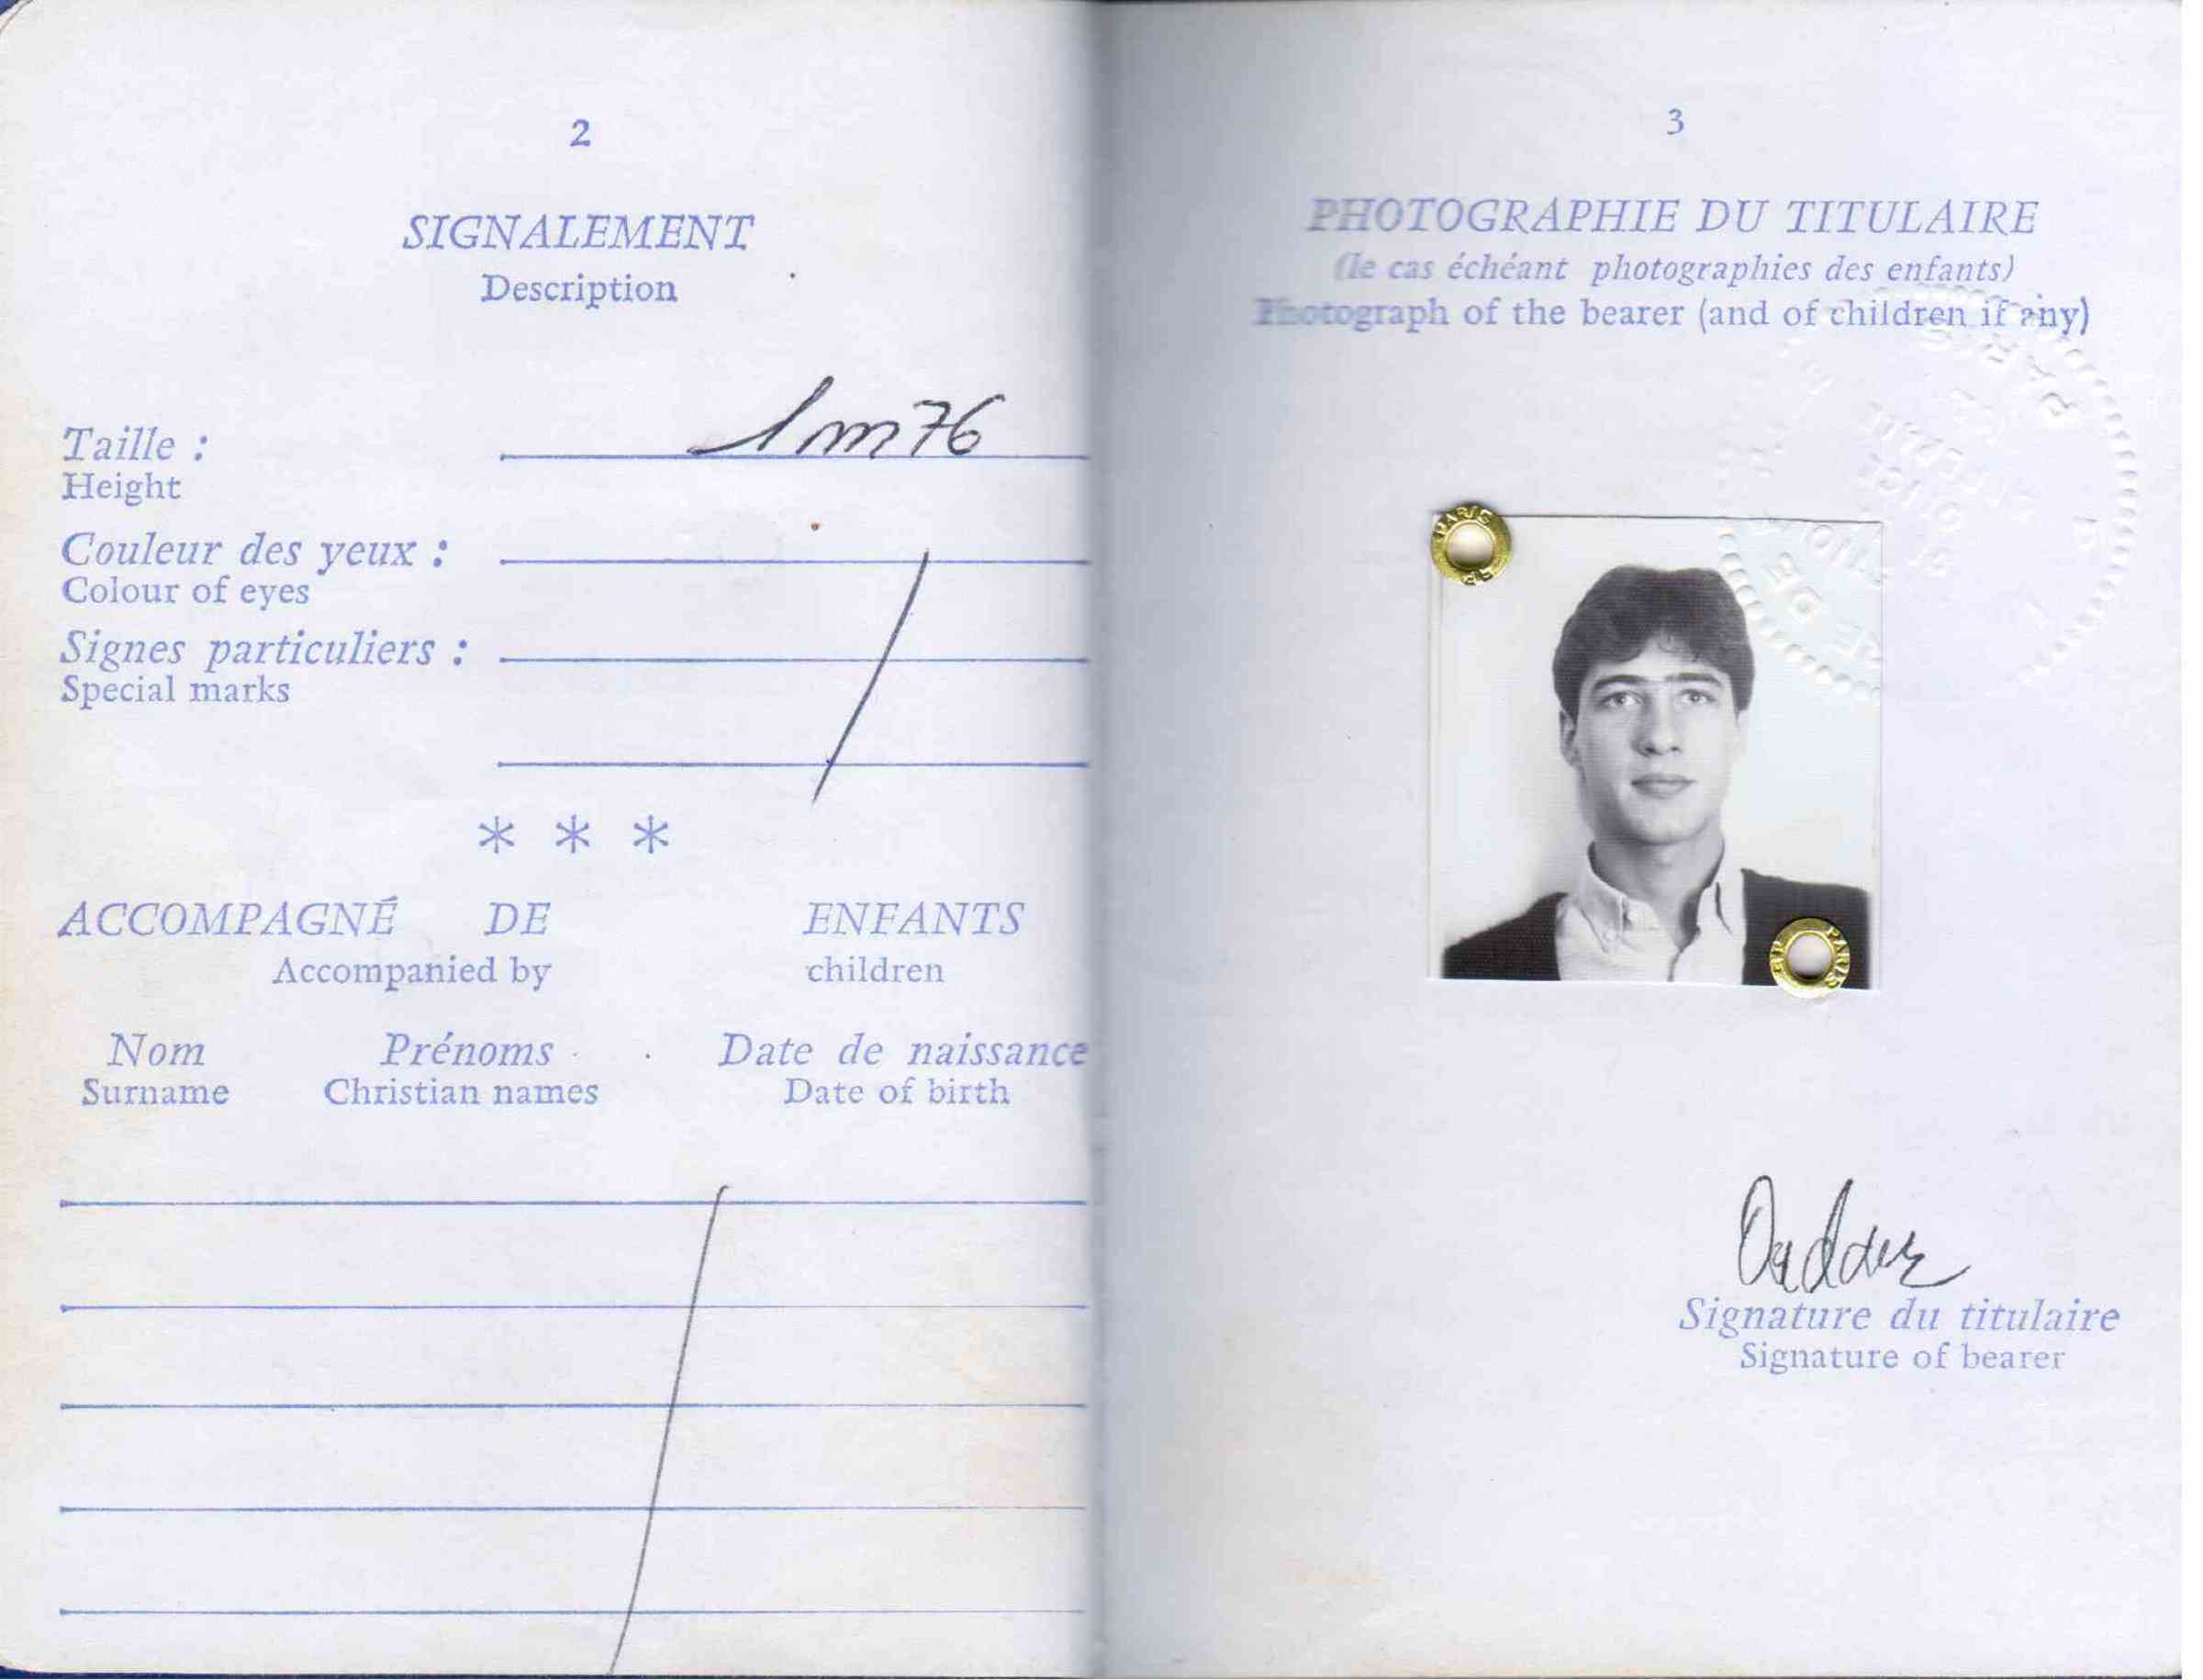 2
SIGNALEMENT
Description
Taille : 1m76
Height
Couleur des yeux :
Colour of eyes
Signes particuliers :
Special marks
* * *
ACCOMPAGNÉ DE ENFANTS
Accompanied by children
Nom Prénoms Date de naissance
Surname Christian names Date of birth
3
PHOTOGRAPHIE DU TITULAIRE
(le cas échéant photographies des enfants)
Photograph of the bearer (and of children if any)
PARIS
PARIS
Signature du titulaire
Signature of bearer